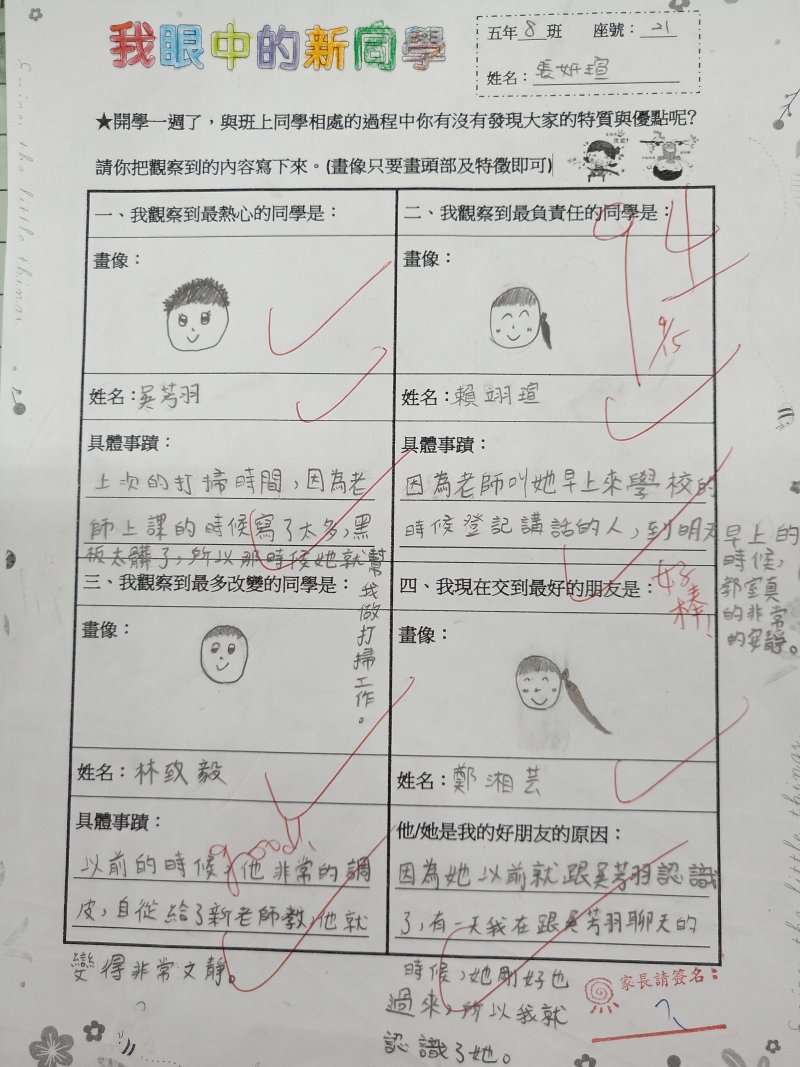 我眼中的新同學
五年8班 座號：21
姓名：張妍瑄
★開學一週了，與班上同學相處的過程中你有沒有發現大家的特質與優點呢？
請你把觀察到的內容寫下來。(畫像只要畫頭部及特徵即可)
一、我觀察到最熱心的同學是：
畫像：
姓名：吳芳羽
具體事蹟：
上次的打掃時間，因為老
師上課的時候寫了太多，黑
板太髒了，所以那時候她就幫
我做打掃工作。
二、我觀察到最負責任的同學是：
94
9/15
畫像：
姓名：賴翊瑄
具體事蹟：
因為老師叫她早上來學校的
時候登記講話的人，到明天早上的
時候，
教室真
的非常
的安靜。
好棒！
三、我觀察到最多改變的同學是：
畫像：
姓名：林致毅
具體事蹟：
good!
以前的時候，他非常的調
皮，自從給了新老師教，他就
變得非常文靜。
四、我現在交到最好的朋友是：
畫像：
姓名：鄭湘芸
他/她是我的好朋友的原因：
因為她以前就跟吳芳羽認識
了，有一天我在跟吳芳羽聊天的
時候，她剛好也
過來，所以我就
認識了她。
家長請簽名：